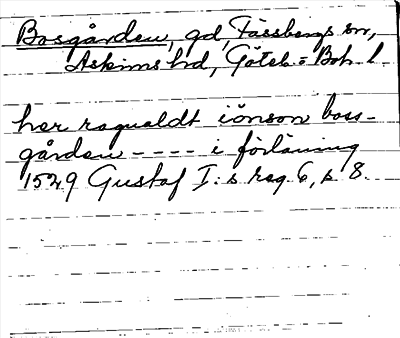 Bosgården, gd, Fässbergs sn,
Askims hd, Göteb. = Boh. l.
her ragualdt iönson boss-
gården - - - - i förläning
1529 Gustaf I:s reg. 6, s 8.